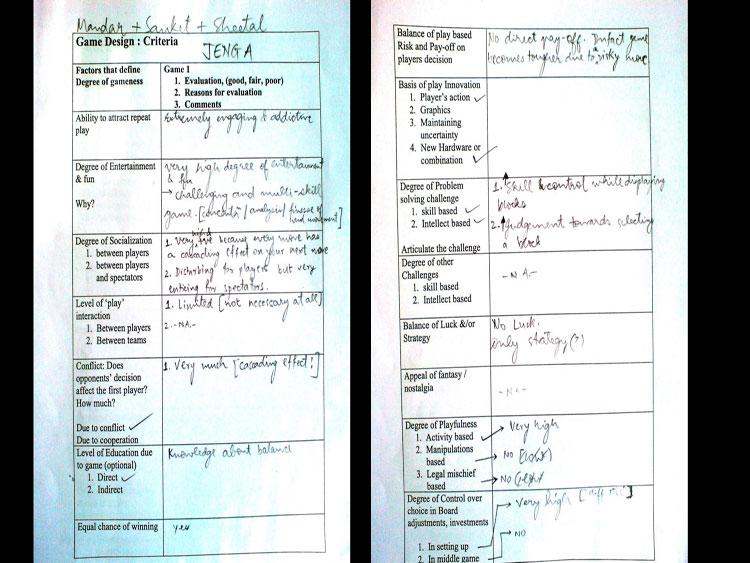 Mandar + Sanket + Sheetal
Game Design : Criteria
JENGA
Factors that define
Degree of gameness
Game 1
1. Evaluation, (good, fair, poor)
2. Reasons for evaluation
3. Comments
Ability to attract repeat
play
Extremely engaging & addictive
Degree of Entertainment
& fun
Why?
Very high degree of entertainment
& fun
→ challenging and multi-skill
game. [concentr/analysis/finesse of
hand movement]
Degree of Socialization
1. between players
2. between players
and spectators
1. Very because every move has
a cascading effect on your next move
2. Disturbing for players but very
enticing for spectators.
Level of 'play'
interaction
1. Between players
2. Between teams
1. Limited [not necessary at all]
2. -NA.-
Conflict: Does
opponents' decision
affect the first player?
How much?
Due to conflict ✓
Due to cooperation
1. Very much [cascading effect!]
Level of Education due
to game (optional)
1. Direct ✓
2. Indirect
Knowledge about balance
Equal chance of winning
yes
Balance of play based
Risk and Pay-off on
players decision
No direct pay-off. Infact game
becomes tougher due to a risky move
Basis of play Innovation
1. Player's action ✓
2. Graphics
3. Maintaining
uncertainty
4. New Hardware or
combination ✓
Degree of Problem
solving challenge
1. skill based ✓
2. Intellect based ✓
Articulate the challenge
1. Skill & control while displaying
blocks
2. Judgement towards selecting
a block
Degree of other
Challenges
1. skill based
2. Intellect based
-NA.-
Balance of Luck &/or
Strategy
No Luck.
only strategy(?)
Appeal of fantasy /
nostalgia
-NA-
Degree of Playfulness
1. Activity based
2. Manipulations
based
3. Legal mischief
based
→ Very high
→ NO
→ NO
Degree of Control over
choice in Board
adjustments, investments
1. In setting up
2. In middle game
→ Very high
→ NO